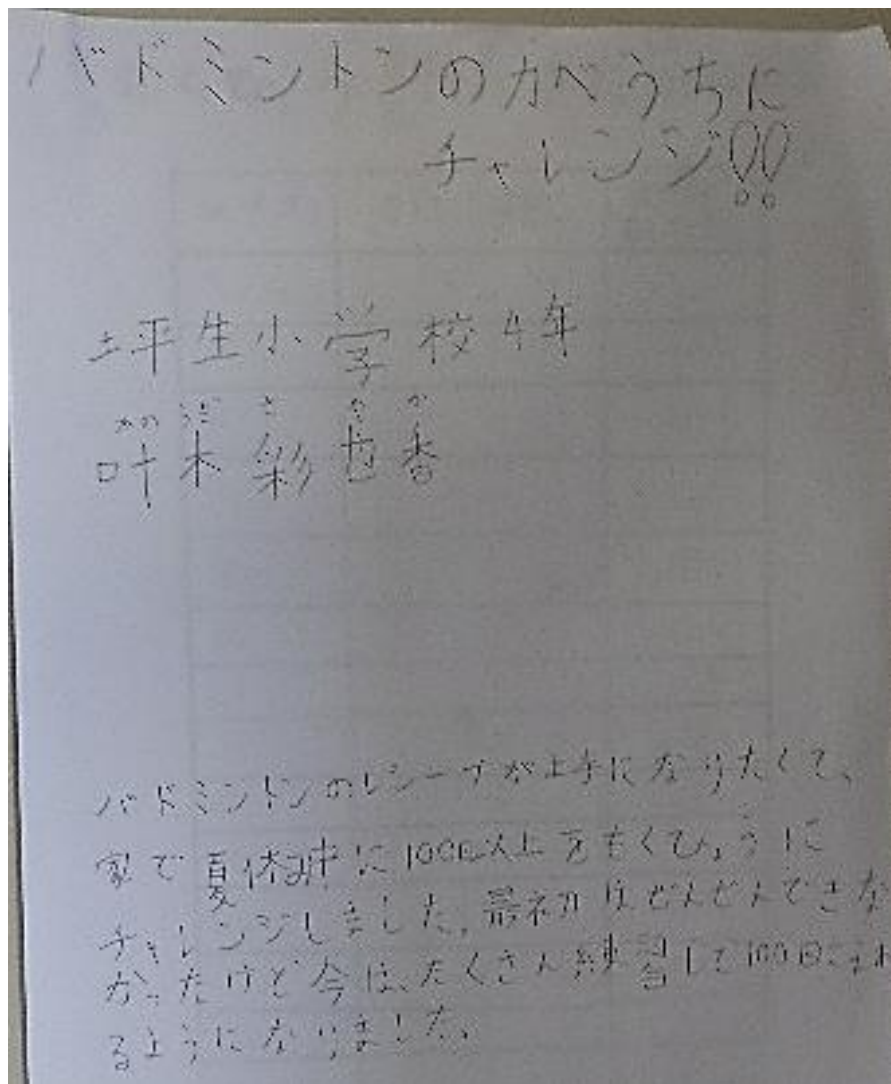 バドミントンのかべうちに
チャレンジ!!
坪生小学校4年
かのうぎ さ や か
叶木彩也香
バドミントンのレシーブが上手になりたくて、
家で夏休み中に100回以上をもくひょうに
チャレンジしました。最初はぜんぜんできな
かったけど今は、たくさん練習して100回こえれ
るようになりました。